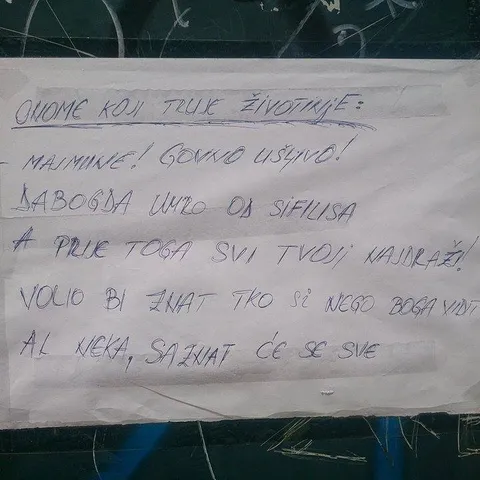 ONOME KOJI TRUJE ŽIVOTINJE:
- MAJMUNE! GOVNO UŠLJIVO!
DABOGDA UMRO OD SIFILISA
A PRIJE TOGA SVI TVOJI NAJDRAŽI!
VOLIO BI ZNAT TKO SI NEGO BOGA VIDIT
AL NEKA, SAZNAT ĆE SE SVE